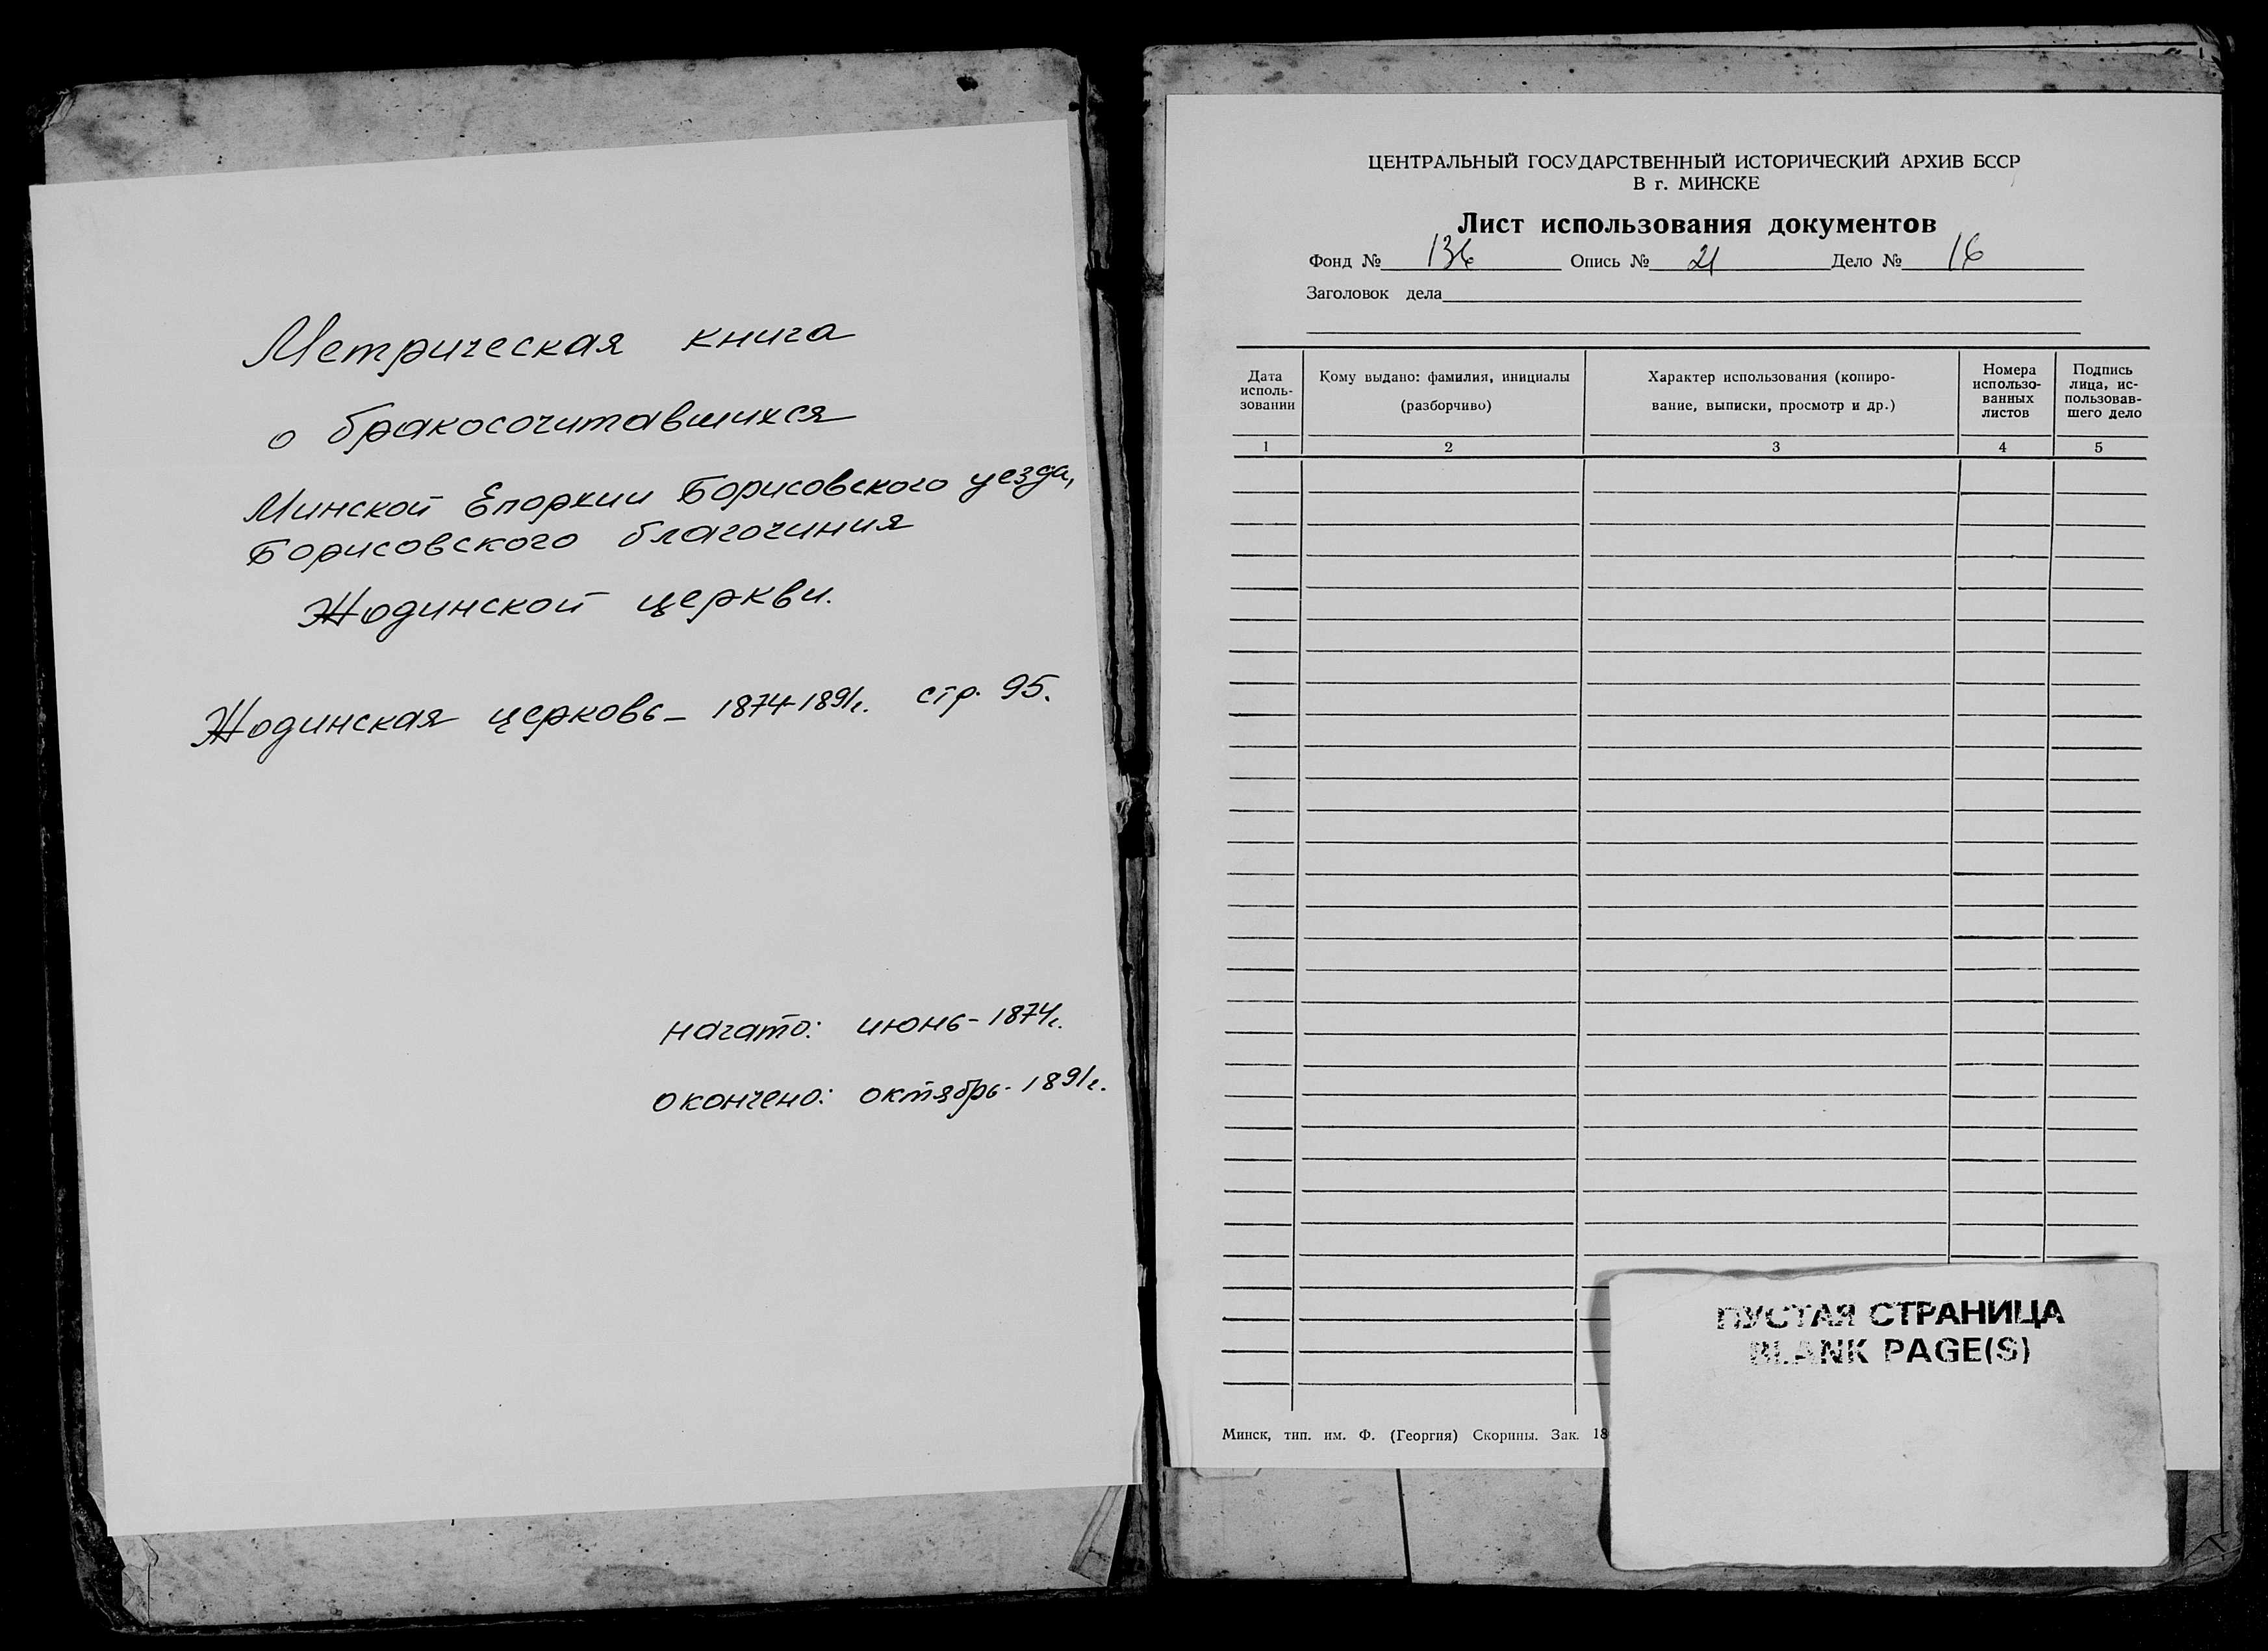 Метрическая книга
о бракосочитавшихся
Минской Епархии Борисовского уезда,
Борисовского благочиния
Жодинской церкви.
Жодинская церковь - 1874-1891г. стр. 95.
начато: июнь - 1874г.
окончено: октябрь - 1891г.
ЦЕНТРАЛЬНЫЙ ГОСУДАРСТВЕННЫЙ ИСТОРИЧЕСКИЙ АРХИВ БССР
В г. МИНСКЕ
Лист использования документов
Фонд № 136 Опись № 21 Дело № 16
Заголовок дела
Дата
исполь-
зовании
Кому выдано: фамилия, инициалы
(разборчиво)
Характер использования (копиро-
вание, выписки, просмотр и др.)
Номера
использо-
ванных
листов
Подпись
лица, ис-
пользовав-
шего дело
1 2 3 4 5
Минск, тип. им. Ф. (Георгия) Скорины. Зак. 18
ПУСТАЯ СТРАНИЦА
BLANK PAGE(S)